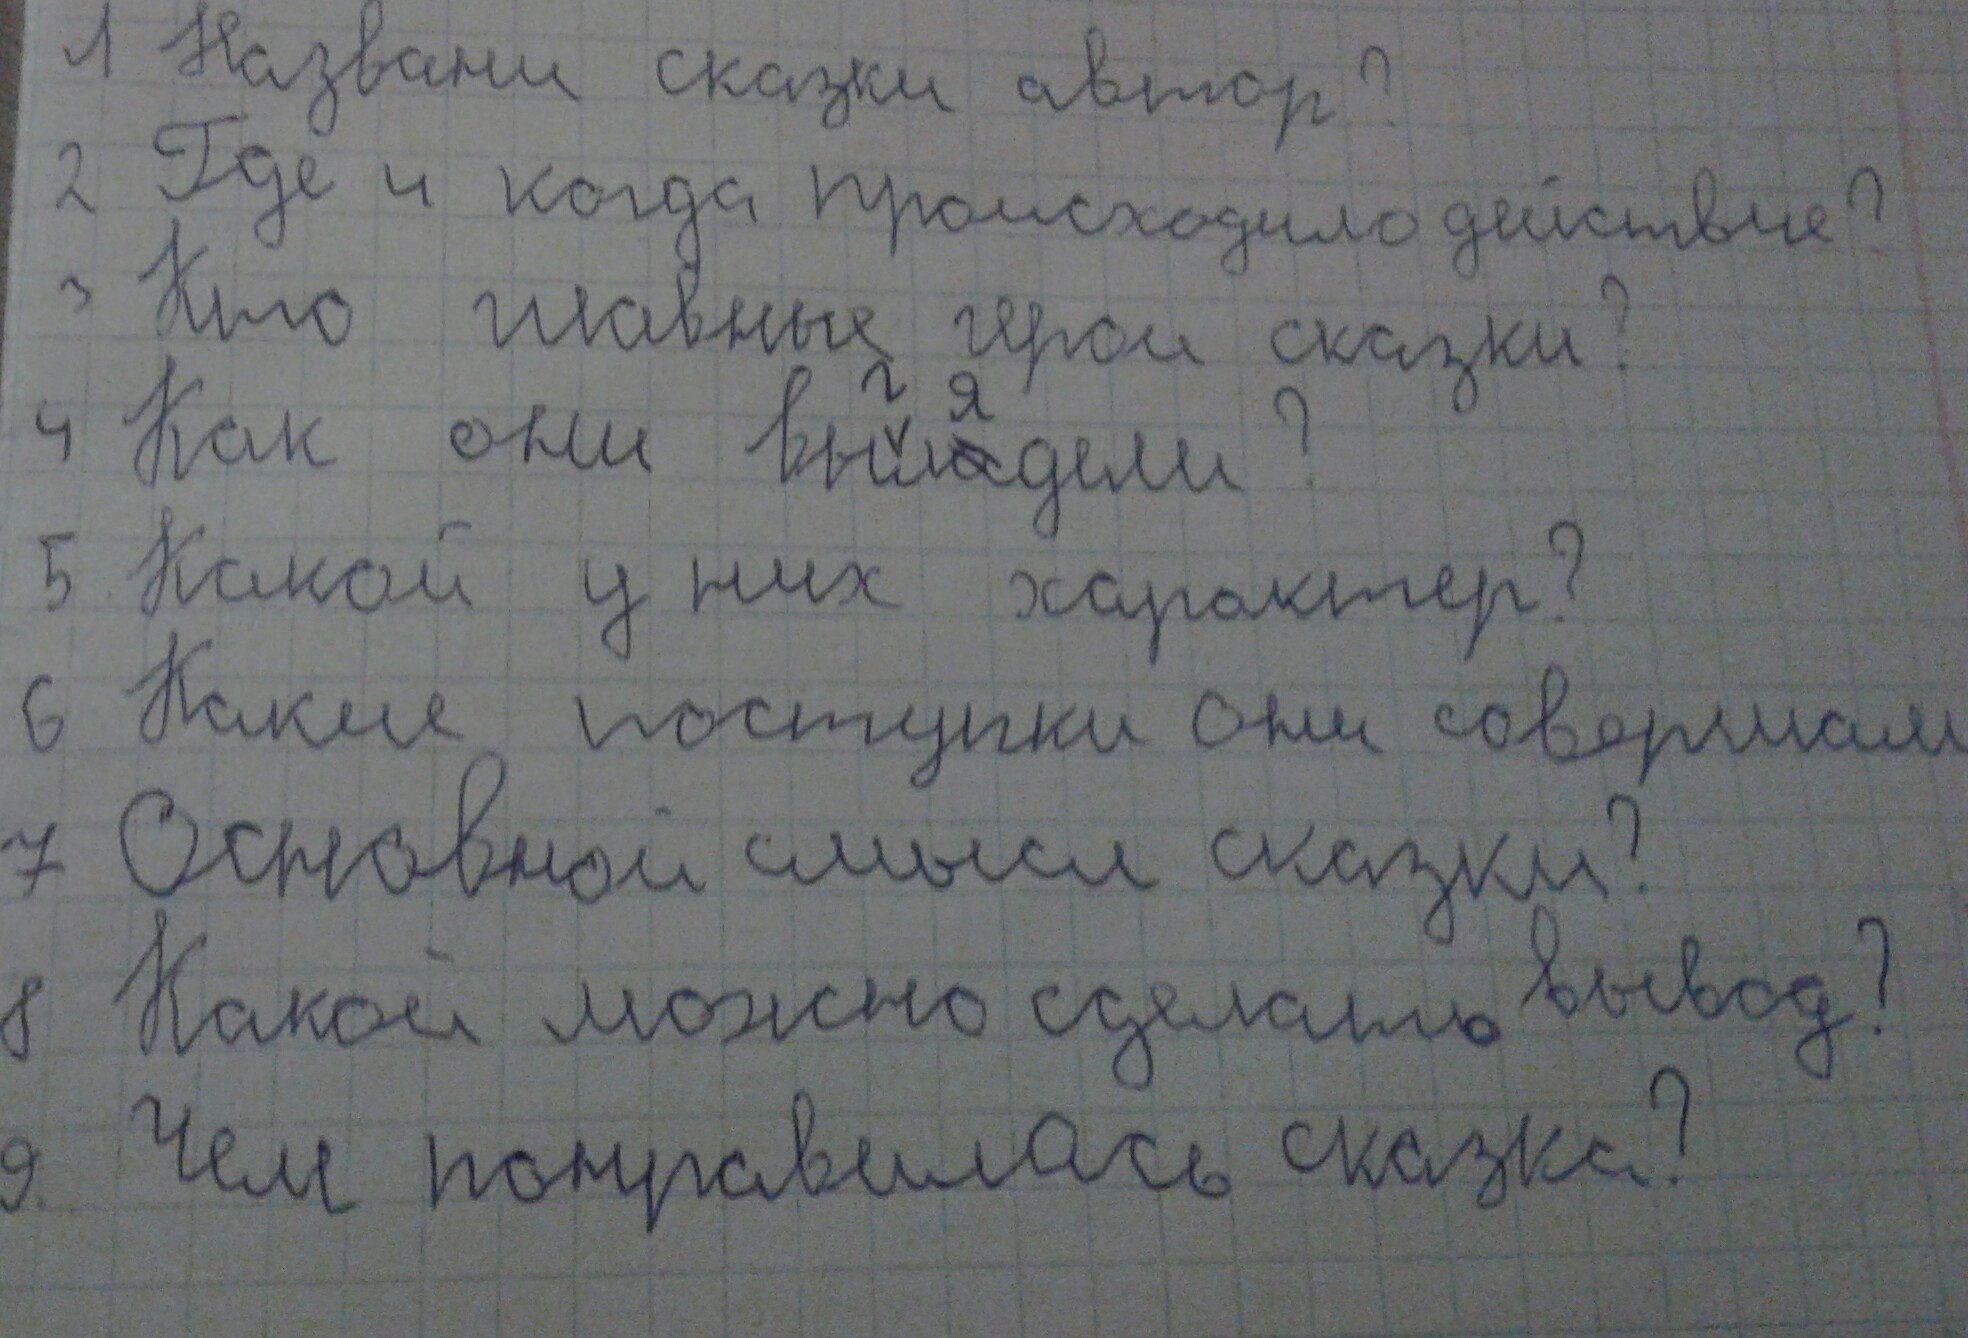 1 Названи сказки автор?
2 Где и когда происходило действие?
3 Кто главные герои сказки?
4 Как они выглядели?
5 Какой у них характер?
6 Какие поступки они совершали
7 Основной смысл сказки?
8 Какой можно сделать вывод?
9. Чем понравилась сказка?